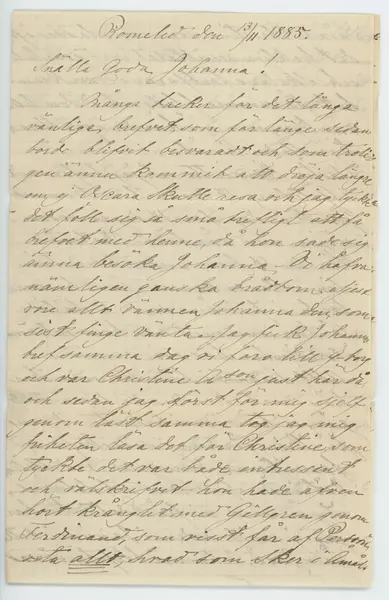 Romelid den 13/11 1885.
Snälla Goda Johanna!
Många tacker för det långa
vänliga brefvet, som för länge sedan
borde blifvit besvaradt och som troli
gen ännu kommit att dröja längre
om ej Oscara skulle resa och jag tyckte
det föll sig så små trefligt att få
brefvet med henne, då hon sade sig
ämna besöka Johanna. Vi hafva
nämligen ganska brådtom,
vore allt vännen Johanna den, som
sist finge vänta. Jag fick Johannas
bref samma dag vi foro till F-borg
och var Christine just här då
och sedan jag först för mig sjelf
genom läst samma tog jag mig
friheten läsa det för Christine, som
tyckte det var både intressent
och välskrifvet. hon hade äfven
hört krånglet med genom
Ferdinand, som visst får af
veta allt, hvad som sker i Amå